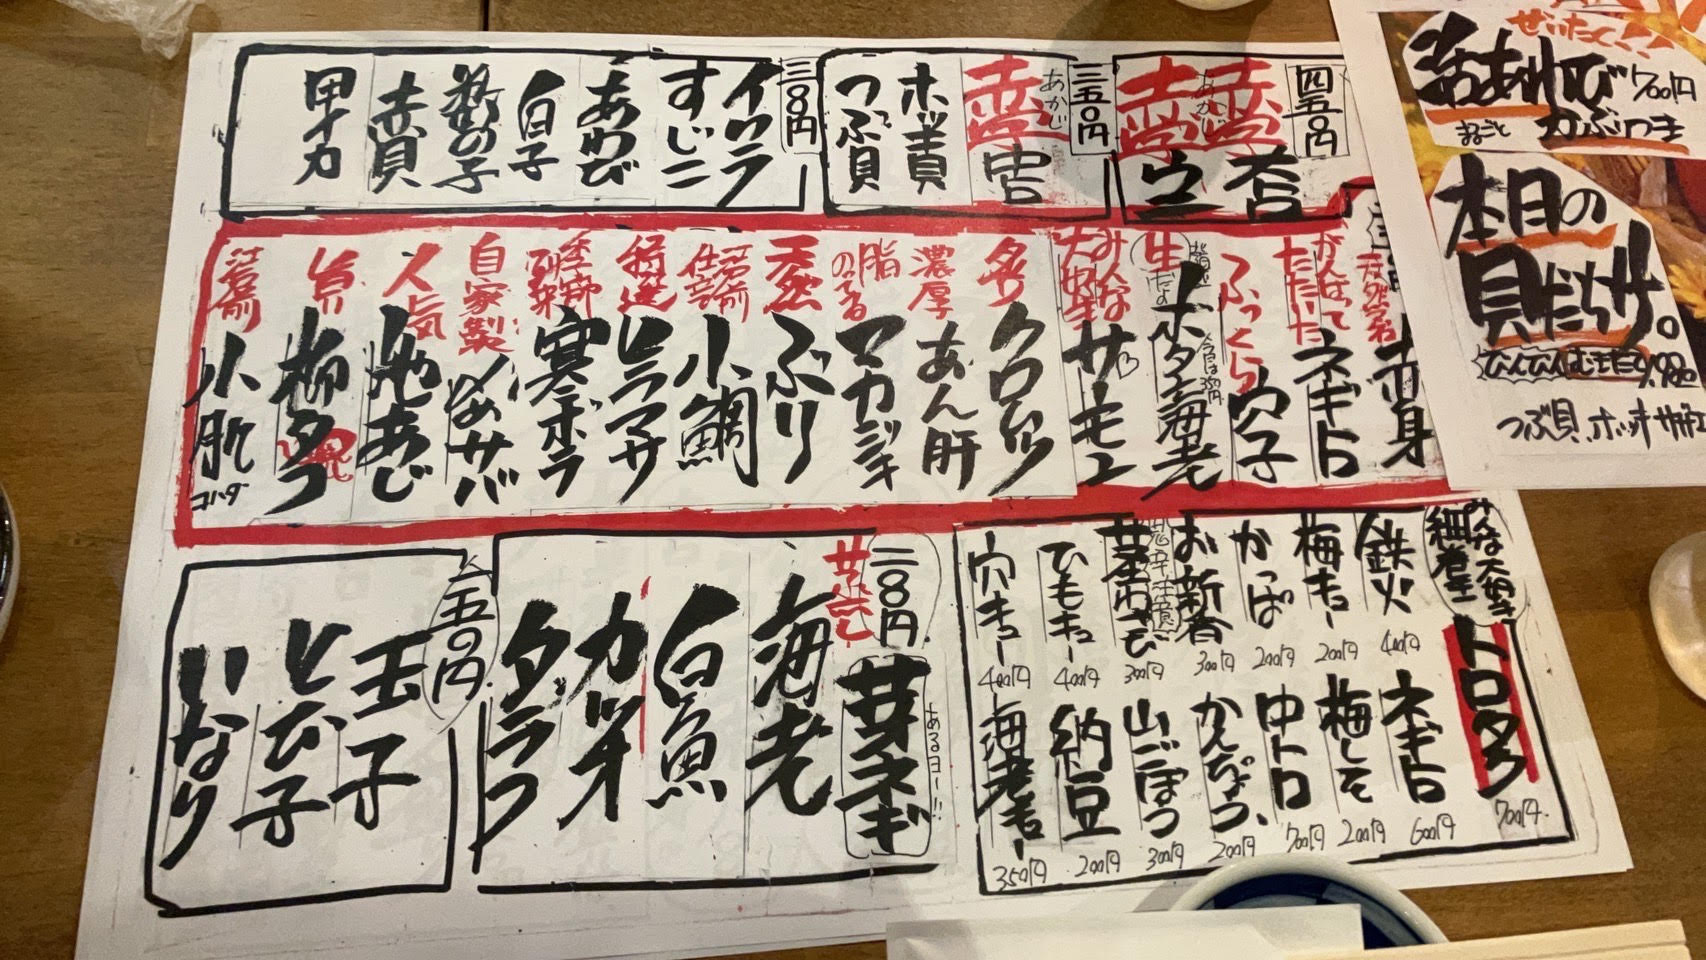 四五〇円
三五〇円
あかじ
ホッキ貝
つぶ貝
三〇〇円
イクラ
すじこ
あわび
白子
数の子
赤貝
甲イカ
赤身
がんばって
たたいた
ネギトロ
ふっくら
穴子
生だよ
ホタテ
海老
今日は350円
みんな
大好き
サーモン
炙り
クロムツ
濃厚
あん肝
脂
のってる
マカジキ
天然
ぶり
江戸前
仕立
小鯛
特選
ヒラマサ
季節
到来
寒ボラ
自家製
〆サバ
人気
地あじ
旨
柳タコ
江戸前
小肌
コハダ
みんな大好き
細巻き
トロタク
700円
鉄火
400円
梅キュー
200円
かっぱ
200円
お新香
300円
茶わさび
300円
ひもキュー
400円
穴キュー
400円
ネギトロ
600円
梅しそ
200円
中トロ
700円
かんぴょう
200円
山ごぼう
300円
納豆
200円
海老キュー
350円
二〇〇円
芽ネギ
あるヨー!!
海老
白魚
カツオ
タラコ
一五〇円
玉子
とび子
いなり
ぜいたく〜!!
活あわび
700円
まるごと
かぶりつき
本日の
貝だちサ。
つぶ貝、ホッキ